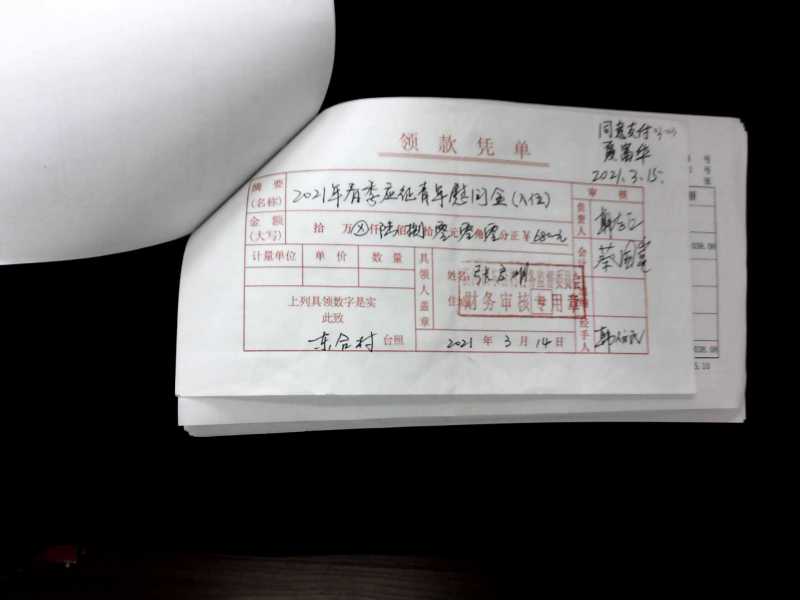 领款凭单
同意支付
夏富华
2021.3.15.
摘要(名称) 2021年春季应征青年慰问金(入伍) 审核
金额(大写) 拾 万 ⊗ 仟 陆 佰 捌 拾 零 元 零 角 零 分 正 ¥ 680元 负责人
计量单位 单价 数量 具领人盖章 姓名
务监督委员会
财务审核专用章
上列具领数字是实
此致
东合村 台照 2021 年 3 月 14 日 经手人
号
号
张
038.08
038.08
5.10